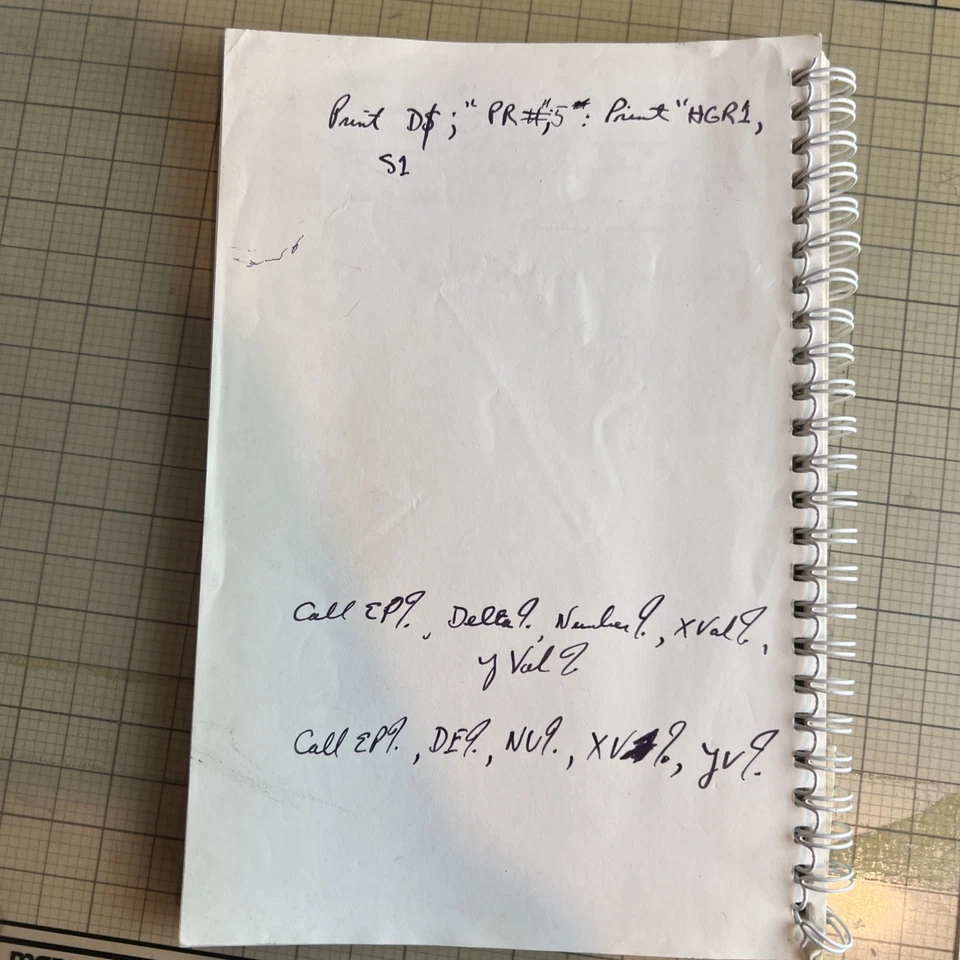 Print D$;" PR#";5 : Print "HGR1,
S1
Call EP%, Delta%, Number%, XVal%,
yVal%
Call EP%, DE%, NU%, XV%, yv%